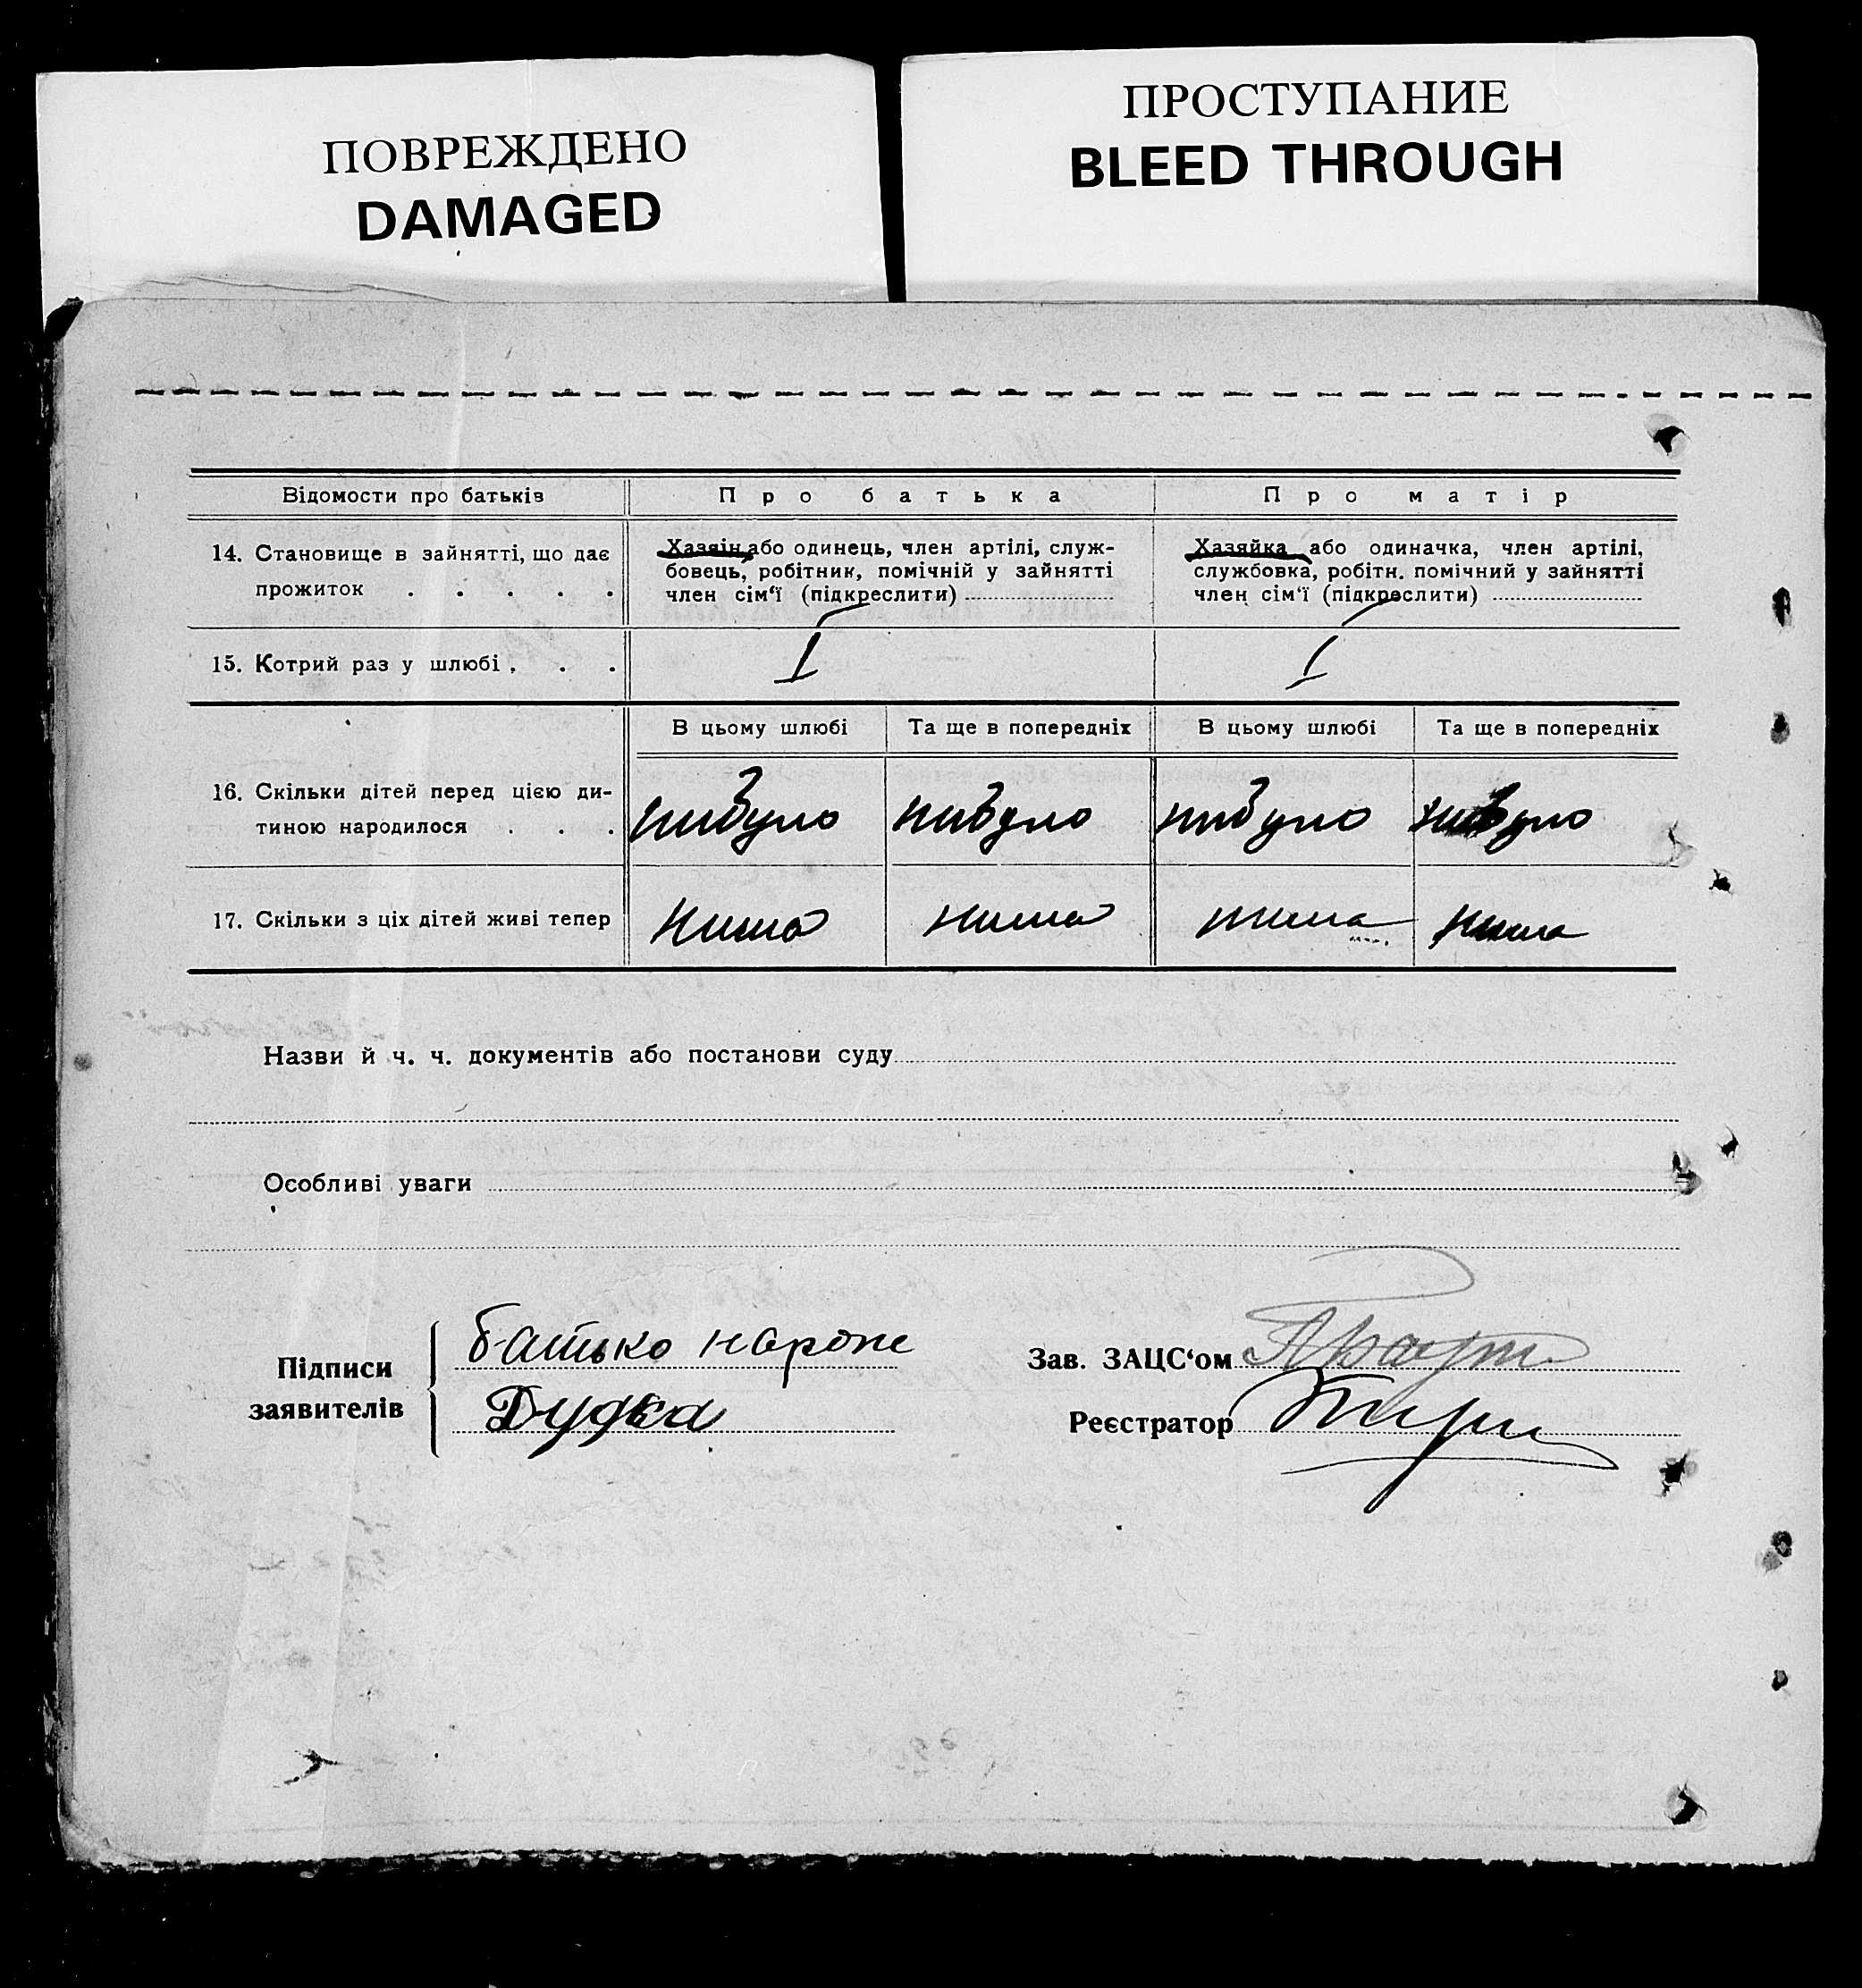 ПОВРЕЖДЕНО
DAMAGED
ПРОСТУПАНИЕ
BLEED THROUGH
Відомости про батьків Про батька Про матір
14. Становище в зайнятті, що дає прожиток . . . . .
Хазяін або одинець, член артілі, служ-
бовець, робітник, помічній у зайнятті
член сім‘ї (підкреслити)
Хазяйка або одиначка, член артілі,
службовка, робітн. помічний у зайнятті
член сім‘ї (підкреслити)
15. Котрий раз у шлюбі . . . I I
В цьому шлюбі Та ще в попередніх В цьому шлюбі Та ще в попередніх
16. Скільки дітей перед цією ди-
тиною народилося . . . нибуло нибуло нибуло нибуло
17. Скільки з ціх дітей живі тепер нима нима нима нима
Назви й ч. ч. документів або постанови суду
Особливі уваги
Підписи
заявителів
батько
Дудка
Зав. ЗАЦС‘ом
Реєстратор